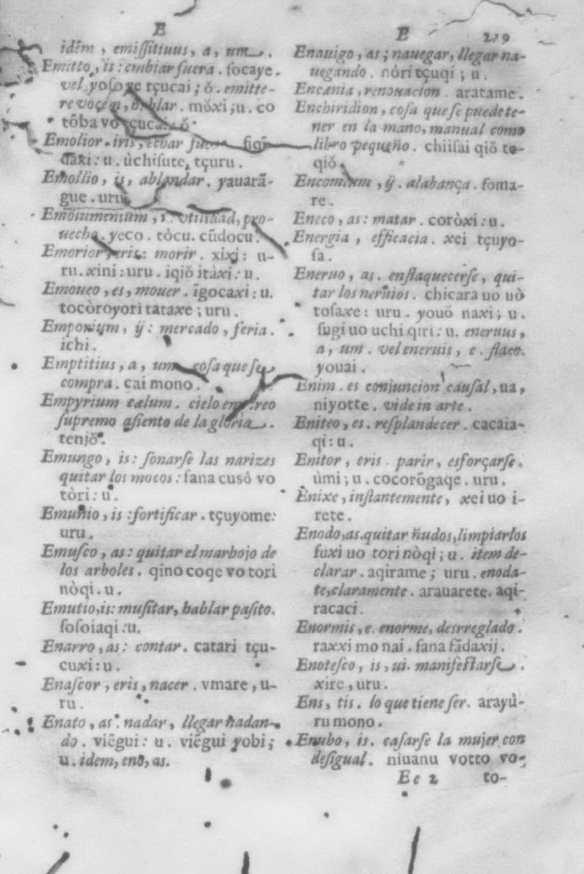 E
idẽm, emiſsitiuus, a, um.
Emitto, is: embiar fuera. focaye.
vel yoſoye tçucai; ô. emitte-
re vocem, hablar. mõxi; u. co
tõba vo
Emolior. iris, echar
daxi: u. ùchiſute, tçuru.
Emollio, is, ablandar. yauarã-
gue. uru.
Emonumentum, i. vtilidad, pro-
uecho. yeco. tôcu. cũdocu.
Emorior, eris: morir. xixi: u-
ru. xini: uru. iqiõ itàxi: u.
Emoueo, es, mouer. ĩgocaxi: u.
tocòroyori tataxe; uru.
Emporium, ÿ: mercado, feria.
ichi.
Emptitius, a, um. coſa que ſe
compra. cai mono.
Empyrium cælum. cielo empireo
ſupremo aſiento de la gloria.
tenjŏ.
Emungo, is: ſonarſe las narizes
quitar los mocos: fana cusó vo
tòri: u.
Emunio, is: fortificar. tçuyome:
uru.
Emuſco, as: quitar el marhojo de
los arboles. qino coqe vo tori
nòqi. u.
Emutio, is: muſitar, hablar paſito.
ſoſoiaqi: u.
Enarro, as: contar. catari tçu-
cuxi: u.
Enaſcor, eris, nacer. vmare, u-
ru.
Enato, as: nadar, llegar nadan-
do. viẽgui: u. viẽgui yobi;
u. idem, eno, as.
E 219
Enauigo, as; nauegar, llegar na-
uegando. nòri tçuqi; u.
Encænia, renouacion. aratame.
Enchiridion, coſa que ſe puede te-
ner en la mano, manual como
libro pequeño. chiiſai qiõ to-
qiõ.
Encomium, ÿ. alabança. foma-
re.
Eneco, as: matar. coròxi: u.
Energia, efficacia. xei tçuyo-
ſa.
Eneruo, as. enflaquecerſe, qui-
tar los neruios. chicara uo uò
toſaxe: uru. youõ naxi; u.
ſugi uo uchi qiri: u. eneruus,
a, um. vel eneruis, e. flaco.
youai.
Enim. es conjuncion cauſal, ua,
niyotte. vide in arte.
Eniteo, es. reſplandecer. cacaia-
qi: u.
Enitor, eris. parir, esforçarſe.
ùmi; u. cocorõgaqe. uru.
Enixe, inſtantemente, xei uo i-
rete.
Enodo, as. quitar ñudos, limpiarlos
fuxi uo tori nòqi; u. item de-
clarar. aqirame; uru. enoda-
te, claramente. arauarete. aqi-
racaci.
Enormis, e. enorme, desrreglado.
raxxi mo nai. fana fãdaxij.
Enoteſco, is, ui. manifeſtarſe.
xire, uru.
Ens, tis. lo que tiene ſer. arayù-
ru mono.
Enubo, is. caſarſe la muger con
deſigual. niuanu votto vo-
Ee 2 to-